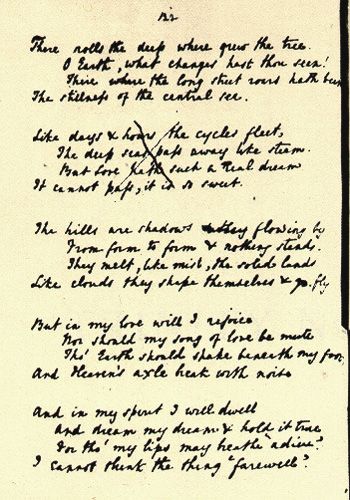 122
There rolls the deep where grew the tree.
O Earth, what changes hast thou seen!
There where the long street roars hath been
The stillness of the central sea.
Like days & hours the cycles fleet,
The deep seas pass away like steam.
But Love hath such a real dream
It cannot pass, it is so sweet.
The hills are shadows & they flowing by
From form to form & nothing stands.
They melt, like mist, the solid lands
Like clouds they shape themselves & go. fly
But in my love will I rejoice
Nor should my song of love be mute
Tho' Earth should shake beneath my foot,
And Heaven's axle break with noise
And in my spirit I will dwell
And dream my dream & hold it true
For tho' my lips may breathe "adieu"
I cannot think the thing "farewell".